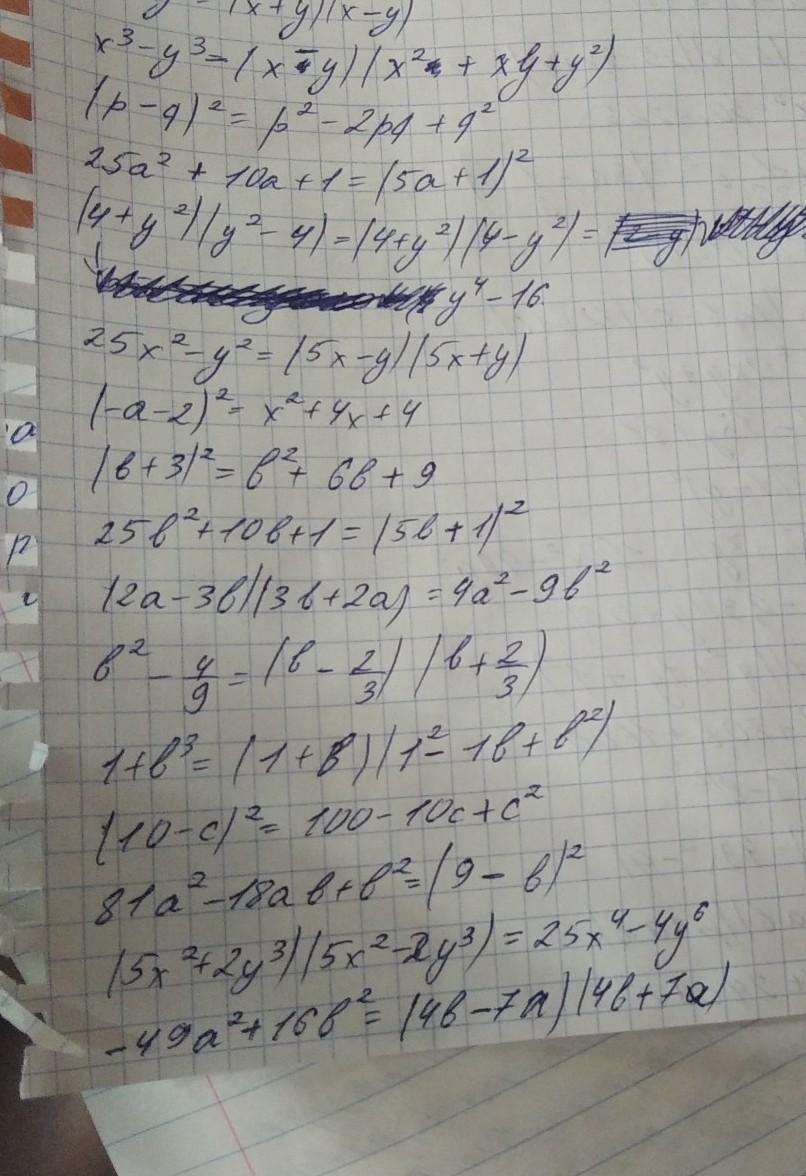 = (x+y)(x-y)
x³-y³=(x-y)(x²+xy+y²)
(p-q)²=p²-2pq+q²
25a²+10a+1=(5a+1)²
(4+y²)(y²-4)=(4+y²)(4-y²)=
y⁴-16
25x²-y²=(5x-y)(5x+y)
(-a-2)²=x²+4x+4
(b+3)²=b²+6b+9
25b²+10b+1=(5b+1)²
(2a-3b)(3b+2a)=4a²-9b²
b²-4/9=(b-2/3)(b+2/3)
1+b³=(1+b)(1²-1b+b²)
(10-c)²=100-10c+c²
81a²-18ab+b²=(9-b)²
(5x²+2y³)(5x²-2y³)=25x⁴-4y⁶
-49a²+16b²=(4b-7a)(4b+7a)